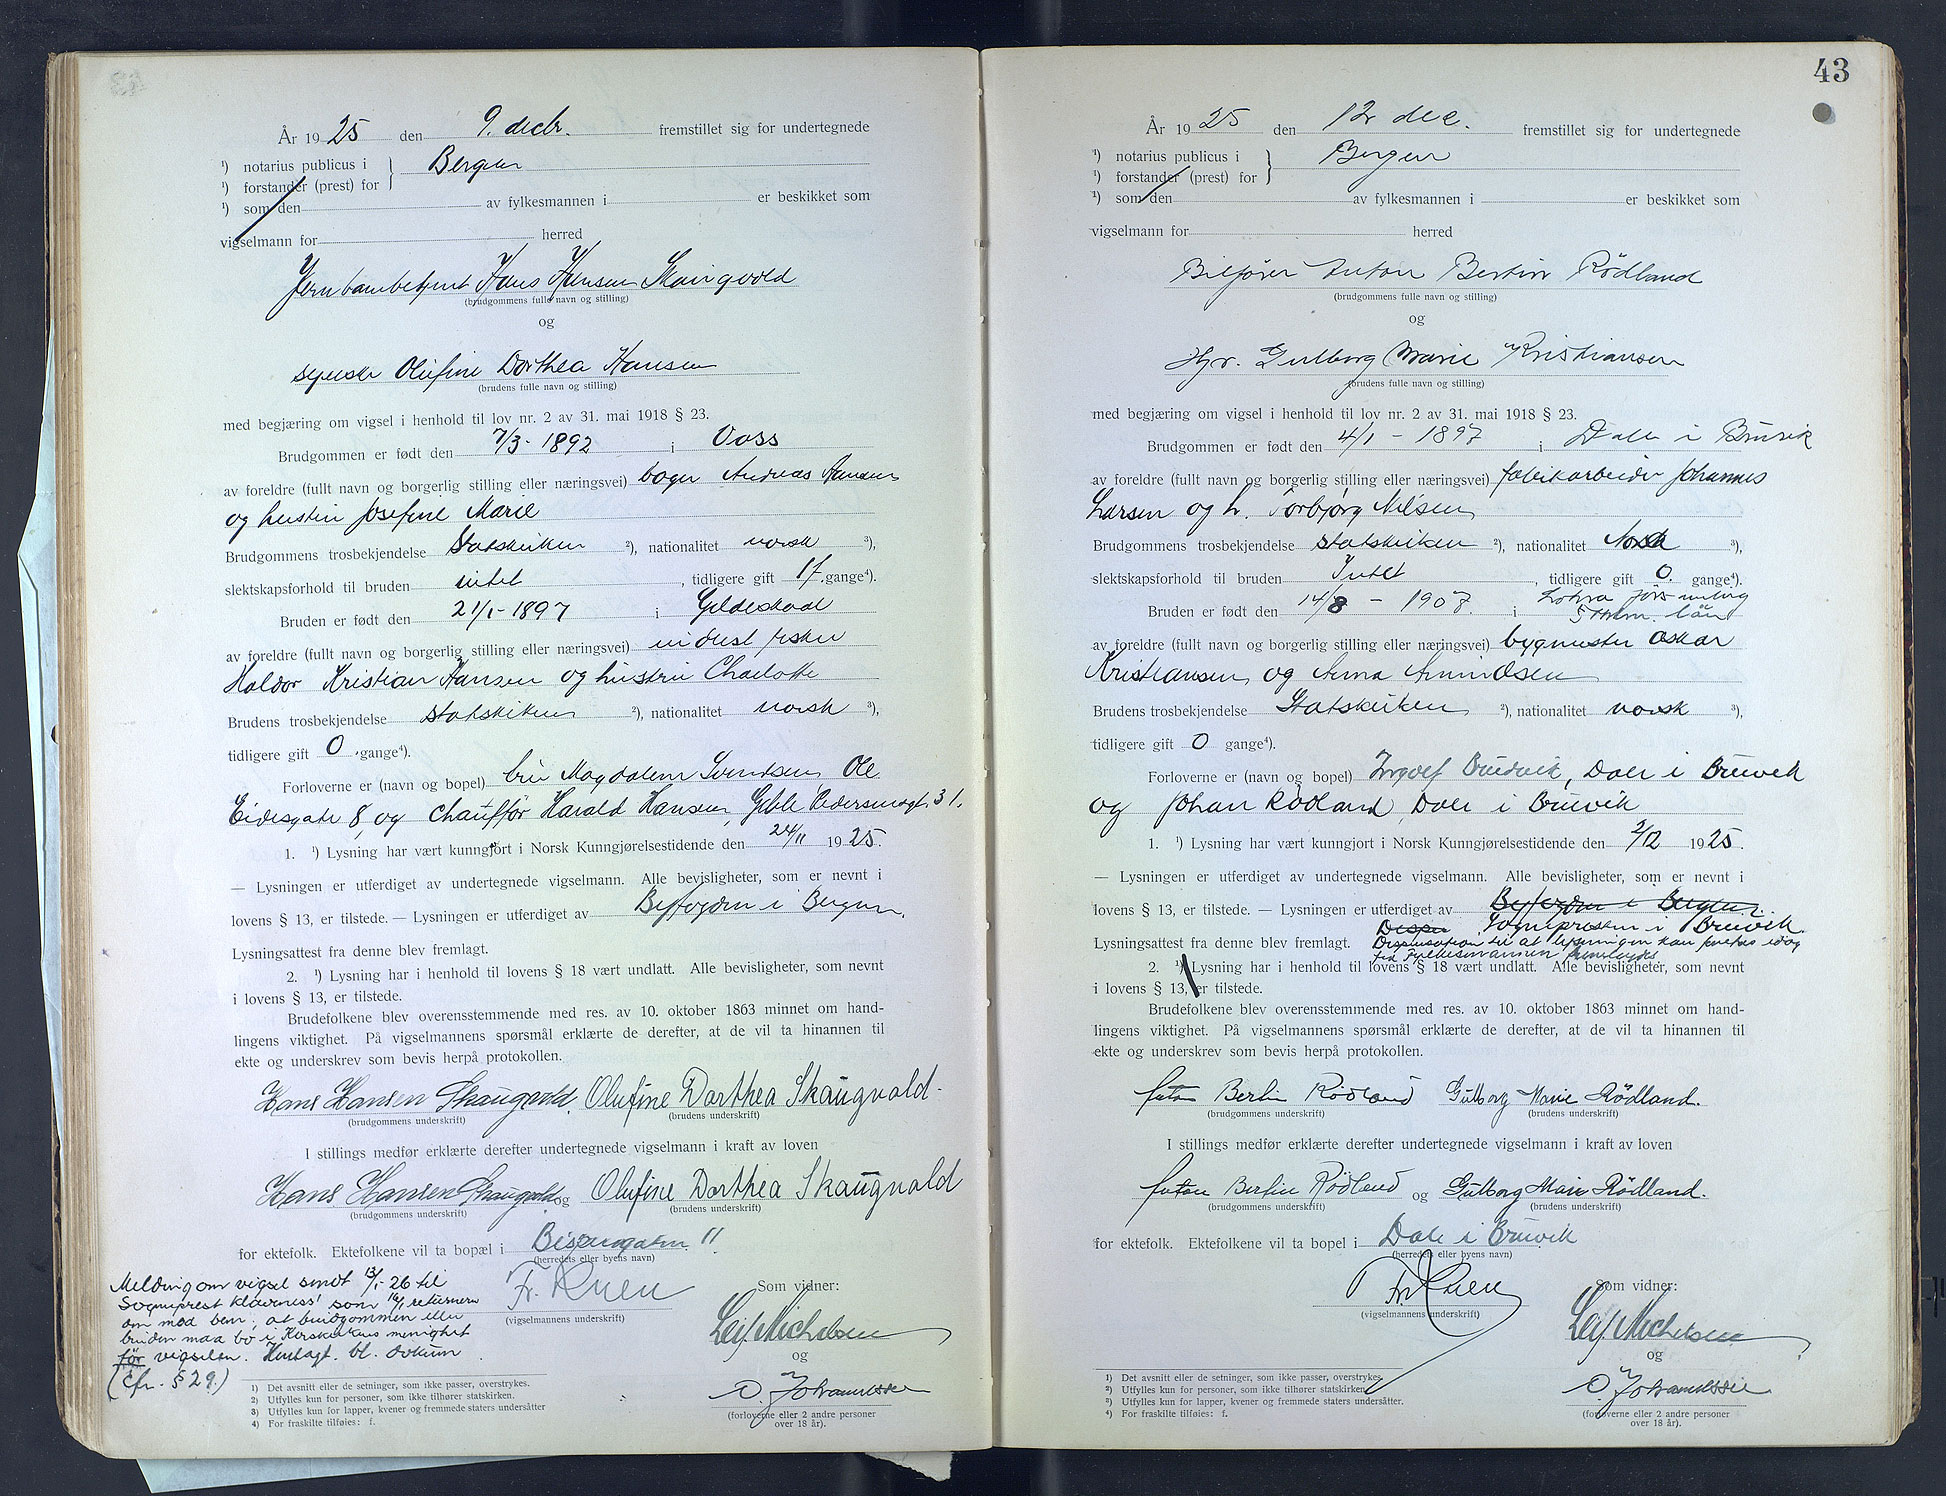 År 1925 den 9. decbr. fremstillet sig for undertegnede
¹) notarius publicus i } Bergen
¹) forstander (prest) for
¹) som den av fylkesmannen i er beskikket som
vigselmann for herred
Jernbanebetjent Hans Hansen Skaugvold
(brudgommens fulle navn og stilling)
og
syerske Olufine Dorthea Hansen
(brudens fulle navn og stilling)
med begjæring om vigsel i henhold til lov nr. 2 av 31. mai 1918 § 23.
Brudgommen er født den 7/3 - 1892 i Voss
av foreldre (fullt navn og borgerlig stilling eller næringsvei) bager Andreas Hansen
og hustru Josefine Marie
Brudgommens trosbekjendelse Statskirken ²), nationalitet norsk ³),
slektskapsforhold til bruden intet, tidligere gift 1 f. gange⁴).
Bruden er født den 21/1 - 1897 i Gildeskaal
av foreldre (fullt navn og borgerlig stilling eller næringsvei) fisker
Haldor Kristian Hansen og hustru Charlotte
Brudens trosbekjendelse statskirken ²), nationalitet norsk ³),
tidligere gift 0 gange⁴).
Forloverne er (navn og bopel) fru Magdalene Svendsen, Ole
Eidesgate 8, og chauffør Harald Hansen, Gable Pedersensgt. 31.
1. ¹) Lysning har vært kunngjort i Norsk Kunngjørelsestidende den 24/11 1925.
— Lysningen er utferdiget av undertegnede vigselmann. Alle bevisligheter, som er nevnt i
lovens § 13, er tilstede. — Lysningen er utferdiget av Byfogden i Bergen.
Lysningsattest fra denne blev fremlagt.
2. ¹) Lysning har i henhold til lovens § 18 vært undlatt. Alle bevisligheter, som nevnt
i lovens § 13, er tilstede.
Brudefolkene blev overensstemmende med res. av 10. oktober 1863 minnet om hand-
lingens viktighet. På vigselmannens spørsmål erklærte de derefter, at de vil ta hinannen til
ekte og underskrev som bevis herpå protokollen.
Hans Hansen Skaugvold. Olufine Dorthea Skaugvold.
(brudgommens underskrift) (brudens underskrift)
I stillings medfør erklærte derefter undertegnede vigselmann i kraft av loven
Hans Hansen Skaugvold og Olufine Dorthea Skaugvold
(brudgommens underskrift) (brudens underskrift)
for ektefolk. Ektefolkene vil ta bopæl i Bispengaten 11.
(herredets eller byens navn)
Melding om vigsel sendt 13/1-26 til
Sogneprest Klaveness' som 16/1 returnerer
den med bem. at brudgommen eller
bruden maa bo i Korskirkens menighet
før vigselen. Henlagt. bl. dokum.
(cfr. § 29.)
Fr. Knen
(vigselmannens underskrift)
Som vidner:
Leif Michelsen
og
O. Johannessen
(forloverne eller 2 andre personer
over 18 år).
1) Det avsnitt eller de setninger, som ikke passer, overstrykes.
2) Utfylles kun for personer, som ikke tilhører statskirken.
3) Utfylles kun for lapper, kvener og fremmede staters undersåtter
4) For fraskilte tilføies: f.
43
År 1925 den 12 dec. fremstillet sig for undertegnede
¹) notarius publicus i } Bergen
¹) forstander (prest) for
¹) som den av fylkesmannen i er beskikket som
vigselmann for herred
Bilfører Anton Bertin Rödland
(brudgommens fulle navn og stilling)
og
Hgr. Gulborg Marie Kristiansen
(brudens fulle navn og stilling)
med begjæring om vigsel i henhold til lov nr. 2 av 31. mai 1918 § 23.
Brudgommen er født den 4/1 - 1897 i Dale i Bruvik
av foreldre (fullt navn og borgerlig stilling eller næringsvei) fabrikarbeider Johannes
Larsen og h. Torbjørg Nilsen
Brudgommens trosbekjendelse statskirken ²), nationalitet Norsk ³),
slektskapsforhold til bruden Intet, tidligere gift 0. gange⁴).
Bruden er født den 14/8 - 1907. i län
av foreldre (fullt navn og borgerlig stilling eller næringsvei) bygmester Oskar
Kristiansen og Anna Amundsen
Brudens trosbekjendelse Statskirken ²), nationalitet norsk ³),
tidligere gift 0 gange⁴).
Forloverne er (navn og bopel) Ingolf Bruvik, Dale i Bruvik
og Johan Rødland, Dale i Bruvik
1. ¹) Lysning har vært kunngjort i Norsk Kunngjørelsestidende den 2/12 1925.
— Lysningen er utferdiget av undertegnede vigselmann. Alle bevisligheter, som er nevnt i
lovens § 13, er tilstede. — Lysningen er utferdiget av Byfogden i Bergen.
Dispen Sognepresten i Bruvik.
Lysningsattest fra denne blev fremlagt. Dispensation til at lysningen kan foretas idag
fra Fylkesmannen fremlegges
2. ¹) Lysning har i henhold til lovens § 18 vært undlatt. Alle bevisligheter, som nevnt
i lovens § 13, er tilstede.
Brudefolkene blev overensstemmende med res. av 10. oktober 1863 minnet om hand-
lingens viktighet. På vigselmannens spørsmål erklærte de derefter, at de vil ta hinannen til
ekte og underskrev som bevis herpå protokollen.
Anton Bertin Rödland Gulborg Marie Rødland.
(brudgommens underskrift) (brudens underskrift)
I stillings medfør erklærte derefter undertegnede vigselmann i kraft av loven
Anton Bertin Rödland og Gulborg Marie Rødland.
(brudgommens underskrift) (brudens underskrift)
for ektefolk. Ektefolkene vil ta bopel i Dale i Bruvik
(herredets eller byens navn)
Fr. Knen
(vigselmannens underskrift)
Som vidner:
Leif Michelsen
og
O. Johannessen
(forloverne eller 2 andre personer
over 18 år).
¹) Det avsnitt eller de setninger, som ikke passer, overstrykes.
²) Utfylles kun for personer, som ikke tilhører statskirken.
³) Utfylles kun for lapper, kvener og fremmede staters undersåtter.
⁴) For fraskilte tilføies: f.